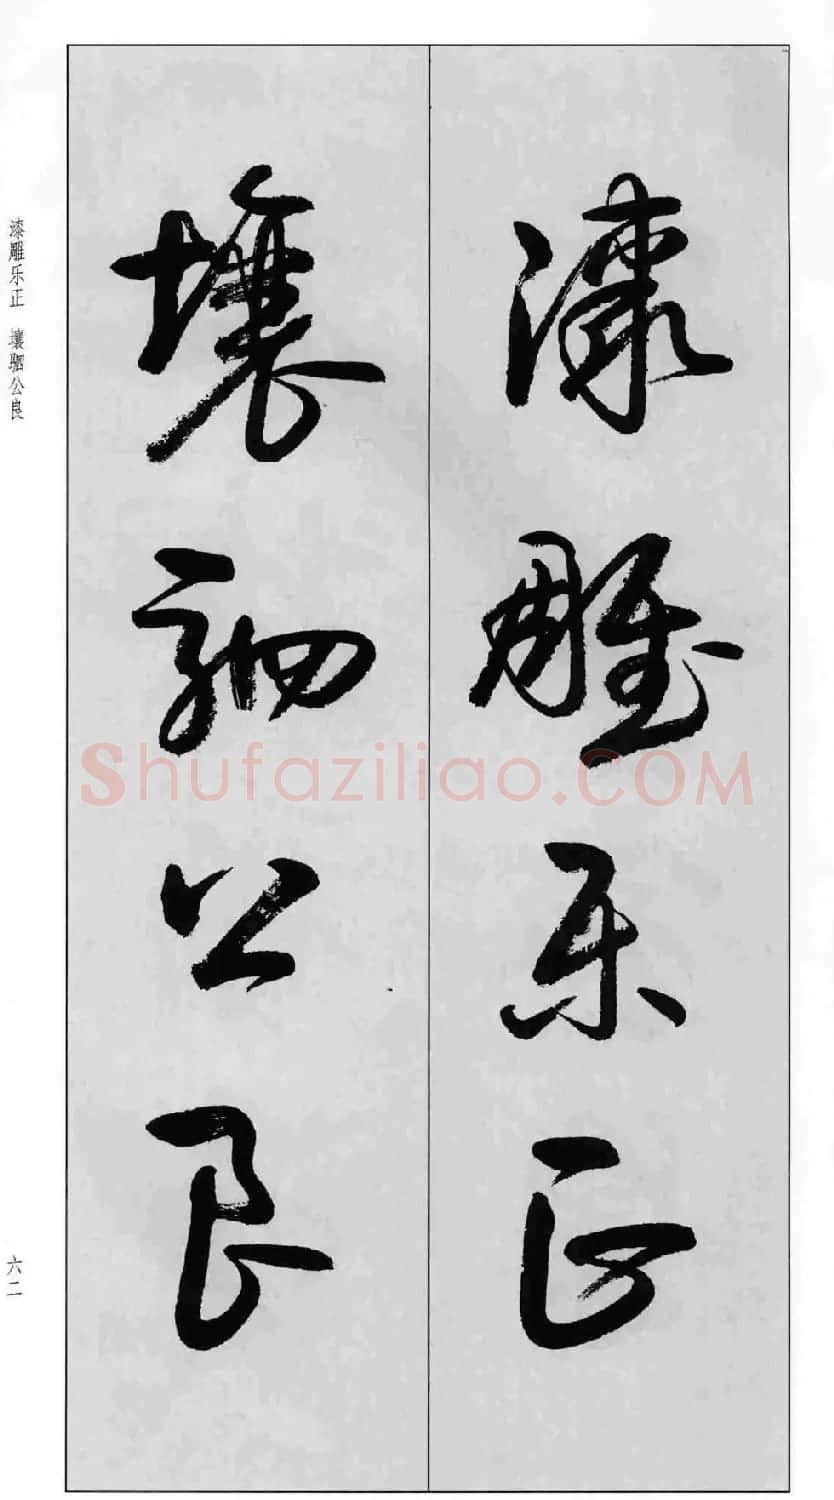 漆雕乐正
壤驷公良
漆雕乐正 壤驷公良
六二
Shufaziliao.COM